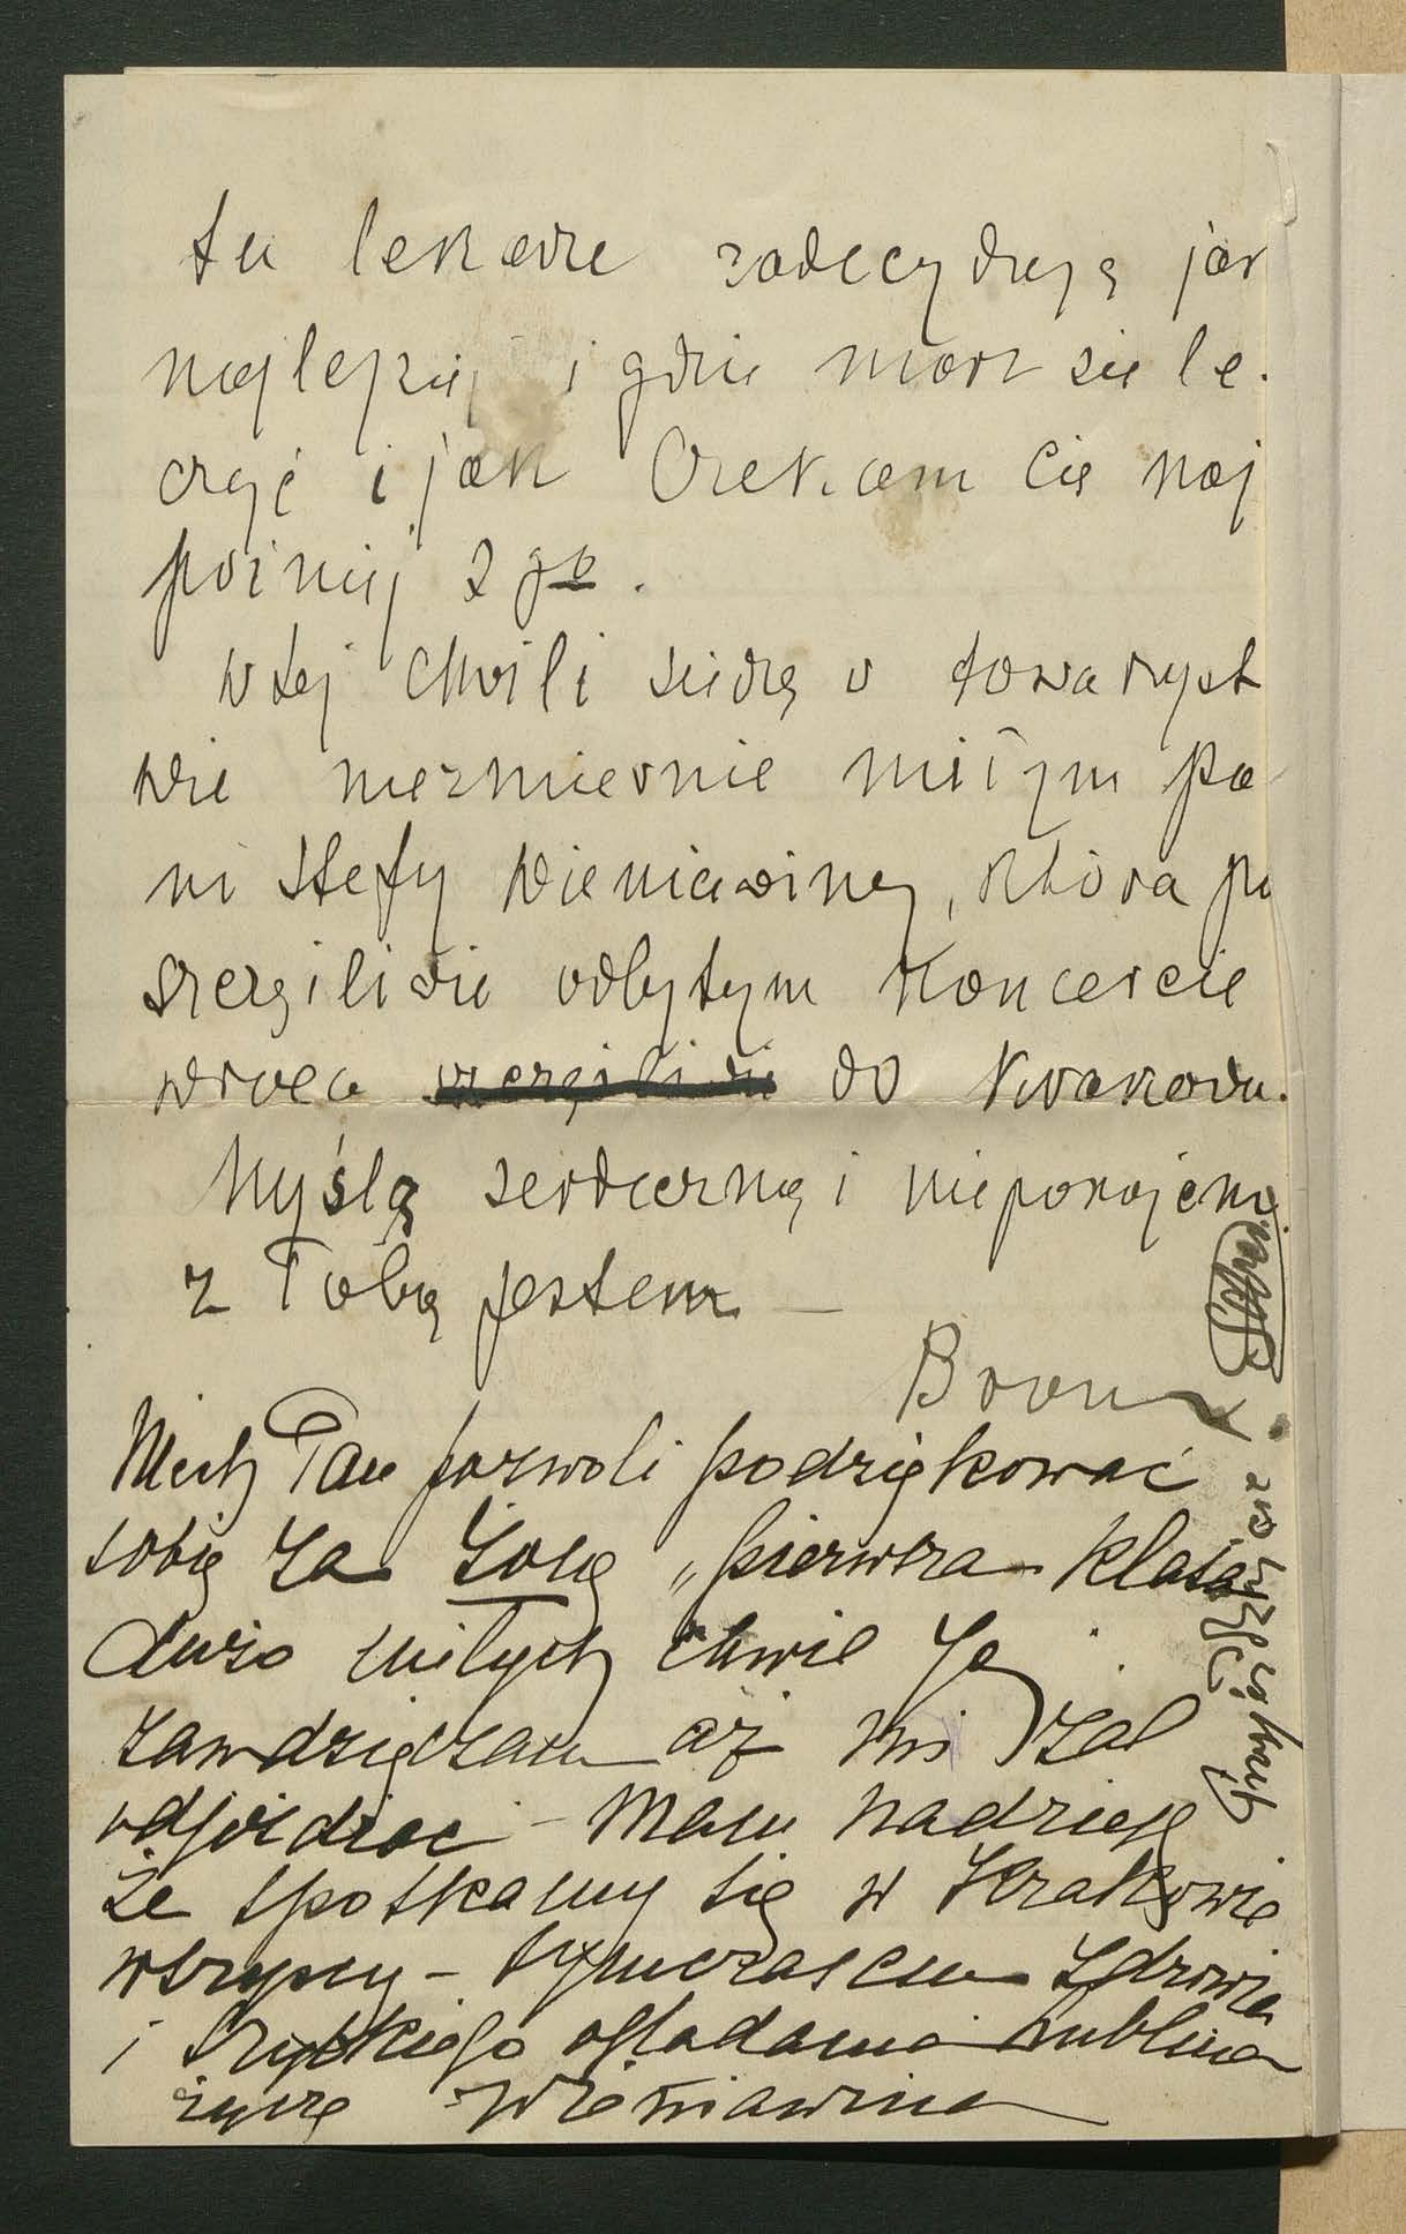 tu lekarze zadecydują jak
najlepiej i gdzie masz się le-
czyć i jak Czekam Cię naj
poźniej 2 go.
W tej chwili siedzę w towarzyst
wie niezmiernie miłym pa
ni Stefy Wieniawiny, która po
szczęśliwie odbytym koncercie
wraca szczęśliwie do Krakowa.
Myślą serdeczną i niepokojem
z Tobą jestem —
Bronia
Niech Pan pozwoli podziękować
sobie za Żonę „pierwsza klasa
dużo miłych chwil Jej
zawdzięczam aż mi żal
odjeżdżać – Mam nadzieję
że spotkamy się w Krakowie
wszyscy – tymczasem Zdrowia
i szybkiego oglądania Lublina
życzę Wieniawina